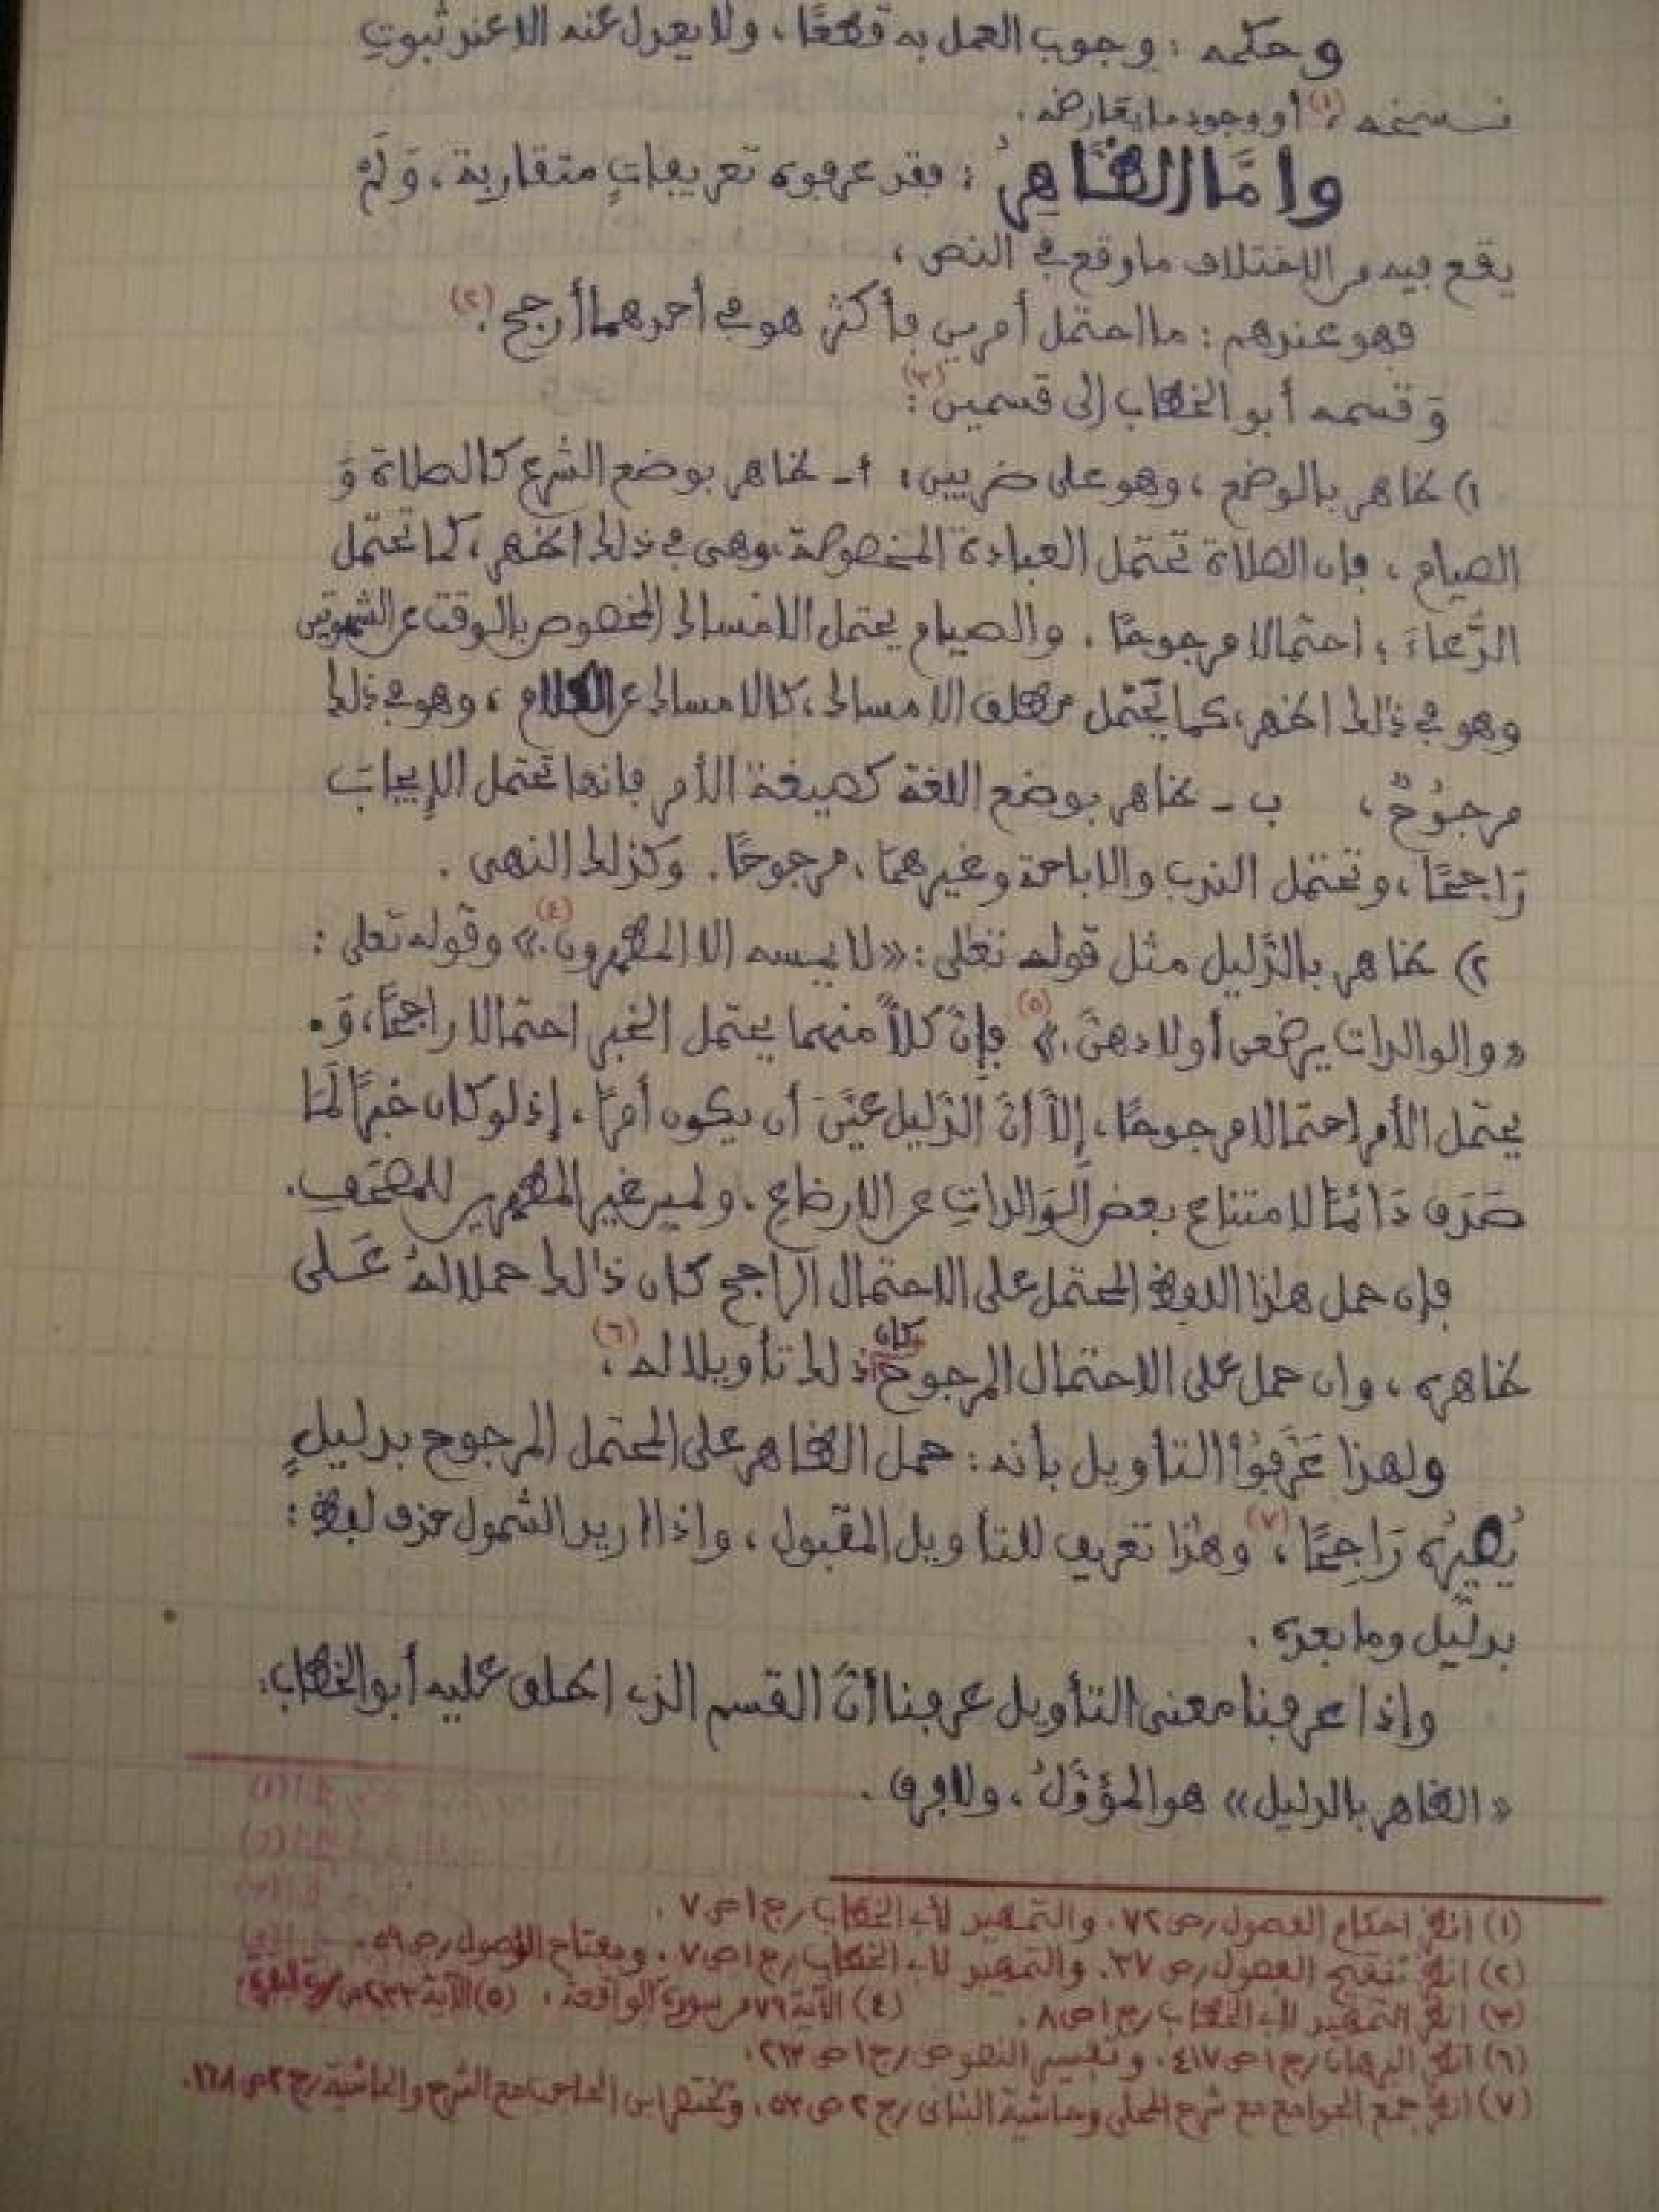 وحكمه : وجوب العمل به قطعًا، ولا يعدل عنه الا عند ثبوتِ
نسخه (١)، أو وجود ما يعارضه .
وامَّا الظَّاهِرُ : فقد عرفوه تعريفاتٍ متقاربة، وَلَمْ
يقع فيه من الاختلاف ما وقع في النص ،
فهو عندهم : ما احتمل أمرين فأكثر هو في أحدهما أرجح (٢).
وَقسمه أبو الخطاب إلى قسمين (٣):
١) ظاهر بالوضع ، وهو على ضربين : أ - ظاهر بوضع الشرع كالصلاة وَ
الصيام ، فإن الصلاة تحتمل العبادة المخصوصة، وهى في ذلك اظهر، كما تحتمل
الدُّعاءَ ؛ احتمالا مرجوحًا . والصيام يحتمل الامساك المخصوص بالوقت عن الشهوتين
وهو في ذلك اظهر، كما يحتمل مطلق الامساك، كالامساك عن الكلام ، وهو في ذلك
مرجوُحٌ ، ب - ظاهر بوضع اللغة كصيغة الأمر فانها تحتمل الإيجابَ
رَاجحًا ، وتحتمل الندب والاباحة وغيرهما، مرجوحًا . وَكذلك النهى .
٢) ظاهر بالدَّليل مثل قوله تعلى : «لا يمسه الا المطهرون.» (٤) وقوله تعلى :
«والوالدات يرضعن أولادهنَّ.» (٥) فإنَّ كلاًّ منهما يحتمل الخبر احتمالا راجحًا، وَ.
يحتمل الأمر احتمالا مرجوحًا، إلاَّ أنَّ الدَّليل عيَّنَ أن يكون أمرًا، إذ لو كان خبرًا لَمَا
صَدَق دَائمًا لامتناع بعض الوَالداتِ عن الارضاع . ولمس غير المطهرين للمصحَفِ.
فإن حمل هاذا اللفظ المحتمل على الاحتمال الراجح كان ذالك حملا لهُ عَلى
ظاهره ، وان حمل على الاحتمال المرجوح كان ذلك تأويلا له (٦)،
ولهذا عَرَّفوُا التأويل بأنه : حمل الظاهر على المحتمل المرجوح بدليلٍ
يُصيِّرُه رَاجِحًا (٧)، وهذا تعريف للتأويل المقبول ، واذا اريد الشمول حذف لفظ :
بدليل وما بعده .
وإذا عرفنا معنى التأويل عرفنا أنَّ القسم الذى اطلق عليه أبو الخطاب:
«الظاهر بالدليل» هو المؤوَّلُ ، ولا فرق .
(١) انظر احكام الفصول / ص ٧٢. والتمهيد لأبى الخطاب / ج ١ ص ٧ .
(٢) انظر تنقيح الفصول / ص ٣٧. والتمهيد لابى الخطاب / ج ١ ص ٧ . ومفتاح الاصول / ص ٥٩.
(٣) انظر التمهيد لابى الخطاب / ج ١ ص ٨ . (٤) الآية ٧٩ من سورة الواقعة . (٥) الآية ٢٣٣ من سورة البقرة
(٦) انظر البرهان / ج ١ ص ٤١٧. وتفسير النصوص / ج ١ ص ٢١٣.
(٧) انظر جمع الجوامع مع شرح المحلى وحاشية البنانى / ج ٢ ص ٥٣. ومختصر ابن الحاجب مع الشرح والحاشية / ج ٢ ص ١٦٨.